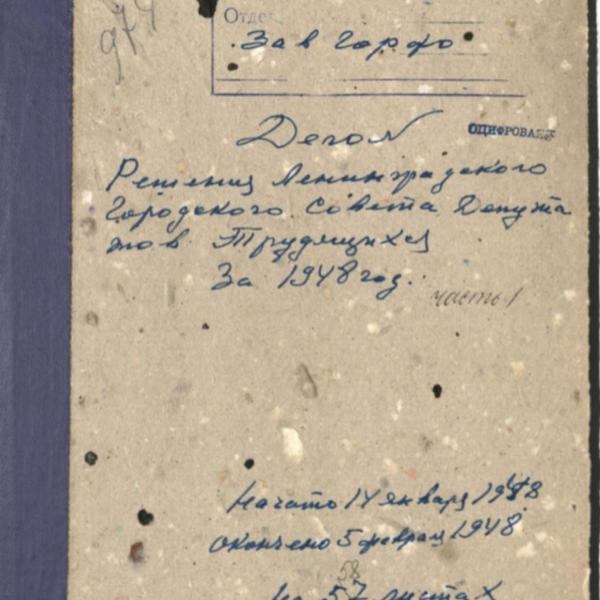 974
Отде
Зав Горфо
Дело №
ОЦИФРОВАНО
Решения Ленинградского
Городского Совета Депута
тов Трудящихся
За 1948 год.
часть 1
Начато 14 января 1948
окончено 5 феврал 1948
58
На 57 листах